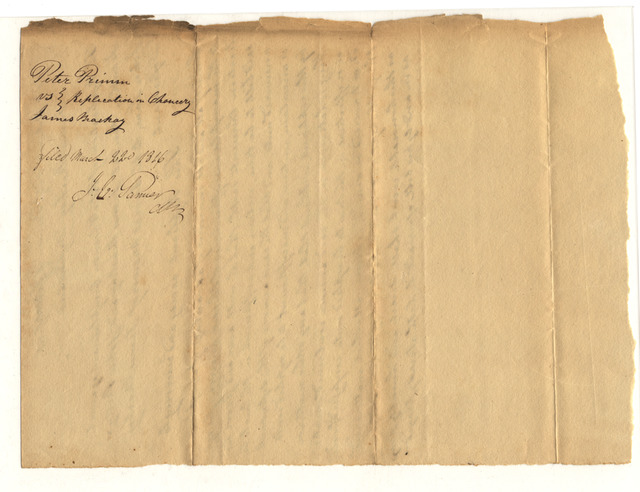 Peter Primm
vs } Replication in Chancery
James Mackay
filed March 22d 1816